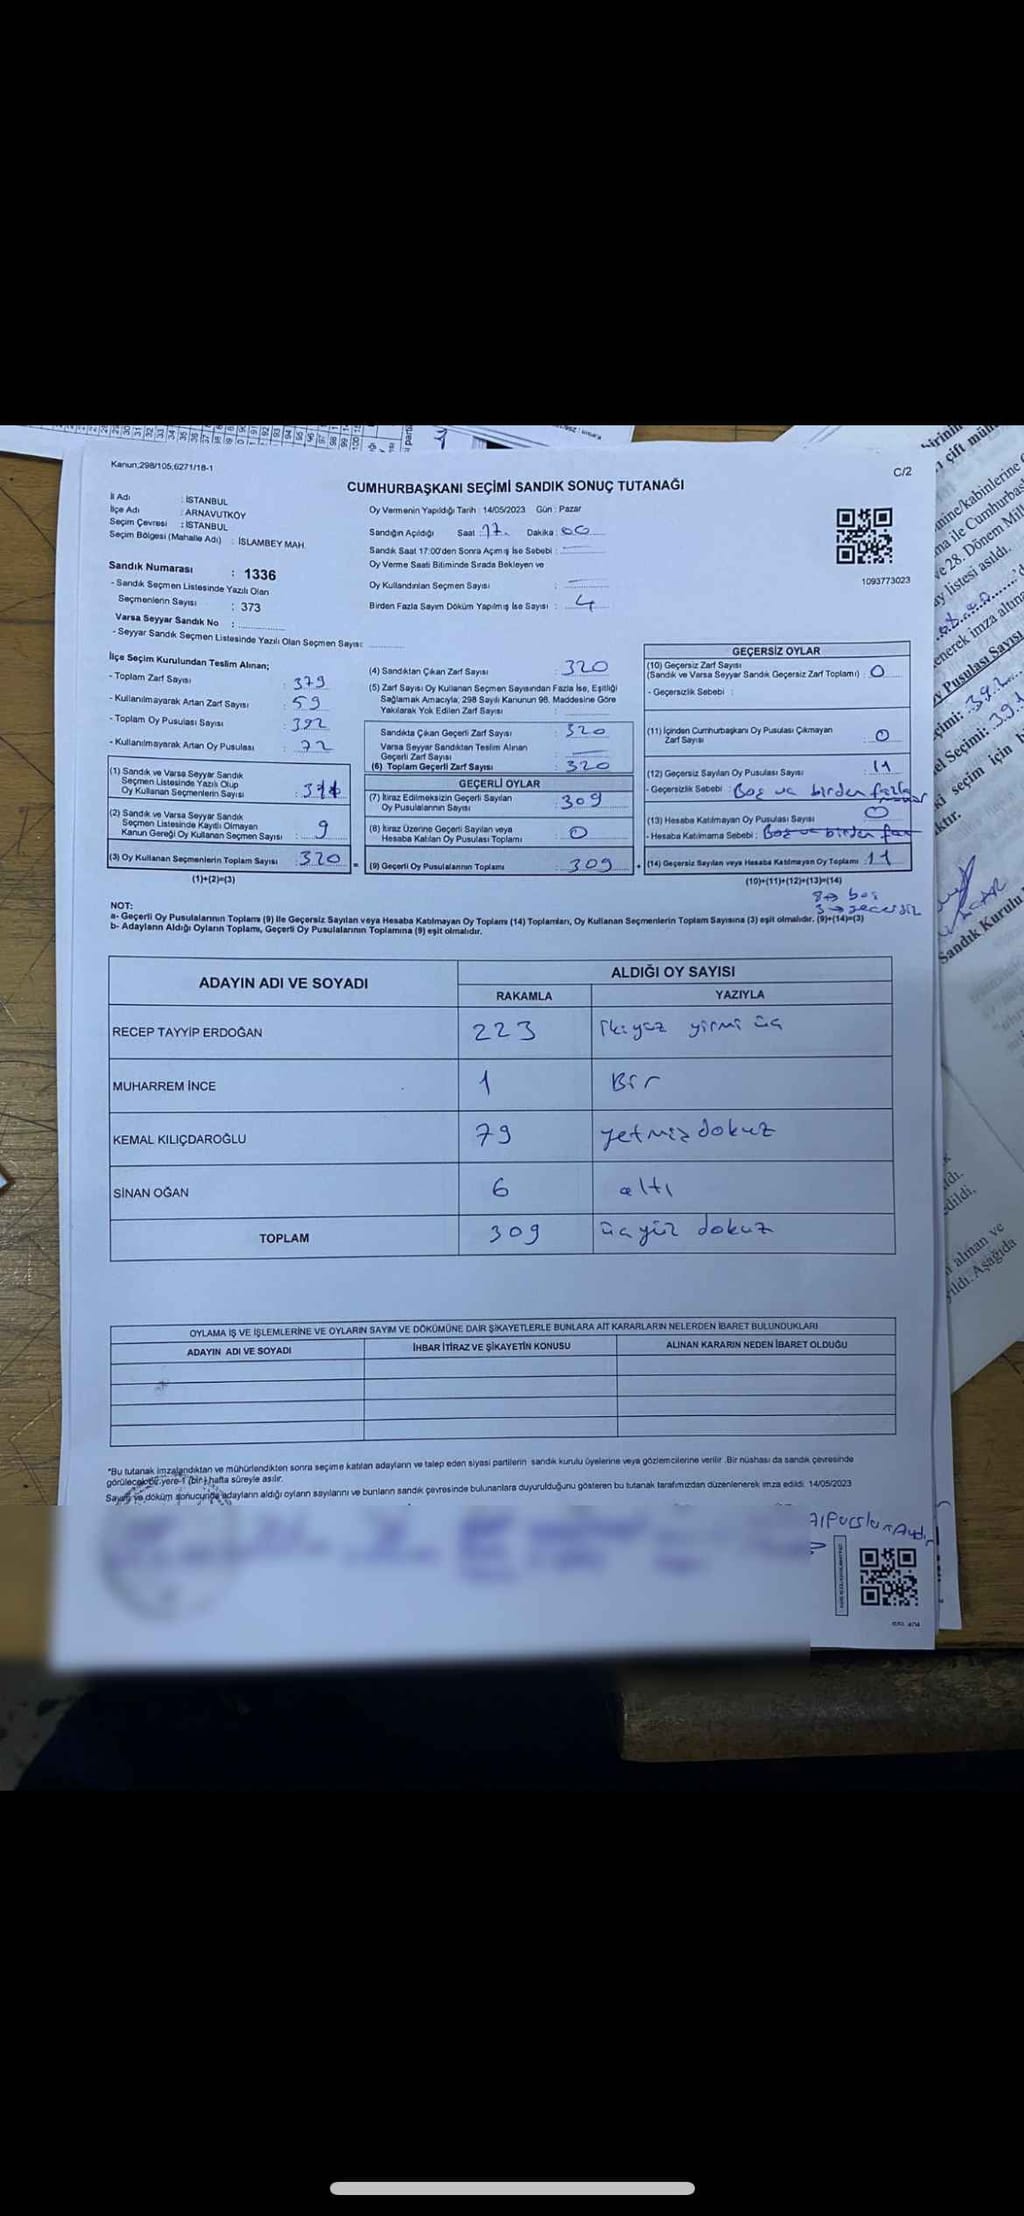 Kanun;298/105,6271/18-1
C/2
CUMHURBAŞKANI SEÇİMİ SANDIK SONUÇ TUTANAĞI
İl Adı : İSTANBUL
İlçe Adı : ARNAVUTKÖY
Seçim Çevresi : İSTANBUL
Seçim Bölgesi (Mahalle Adı) : İSLAMBEY MAH.
Sandık Numarası : 1336
- Sandık Seçmen Listesinde Yazılı Olan
Seçmenlerin Sayısı : 373
Varsa Seyyar Sandık No :
- Seyyar Sandık Seçmen Listesinde Yazılı Olan Seçmen Sayısı:
Oy Vermenin Yapıldığı Tarih : 14/05/2023 Gün : Pazar
Sandığın Açıldığı Saat : 17. Dakika : 00
Sandık Saat 17:00'den Sonra Açılmış İse Sebebi :
Oy Verme Saati Bitiminde Sırada Bekleyen ve
Oy Kullandırılan Seçmen Sayısı :
Birden Fazla Sayım Döküm Yapılmış İse Sayısı : 4
1093773023
İlçe Seçim Kurulundan Teslim Alınan;
- Toplam Zarf Sayısı : 379
- Kullanılmayarak Artan Zarf Sayısı : 59
- Toplam Oy Pusulası Sayısı : 392
- Kullanılmayarak Artan Oy Pusulası : 72
(1) Sandık ve Varsa Seyyar Sandık
Seçmen Listesinde Yazılı Olup
Oy Kullanan Seçmenlerin Sayısı :
(2) Sandık ve Varsa Seyyar Sandık
Seçmen Listesinde Kayıtlı Olmayan
Kanun Gereği Oy Kullanan Seçmen Sayısı : 9
(3) Oy Kullanan Seçmenlerin Toplam Sayısı : 320
(1)+(2)=(3)
(4) Sandıktan Çıkan Zarf Sayısı : 320
(5) Zarf Sayısı Oy Kullanan Seçmen Sayısından Fazla İse, Eşitliği
Sağlamak Amacıyla, 298 Sayılı Kanunun 98. Maddesine Göre
Yakılarak Yok Edilen Zarf Sayısı :
Sandıkta Çıkan Geçerli Zarf Sayısı : 320
Varsa Seyyar Sandıktan Teslim Alınan
Geçerli Zarf Sayısı :
(6) Toplam Geçerli Zarf Sayısı : 320
GEÇERLİ OYLAR
(7) İtiraz Edilmeksizin Geçerli Sayılan
Oy Pusulalarının Sayısı : 309
(8) İtiraz Üzerine Geçerli Sayılan veya
Hesaba Katılan Oy Pusulası Toplamı : 0
= (9) Geçerli Oy Pusulalarının Toplamı : 309 +
GEÇERSİZ OYLAR
(10) Geçersiz Zarf Sayısı
(Sandık ve Varsa Seyyar Sandık Geçersiz Zarf Toplamı) : 0
- Geçersizlik Sebebi :
(11) İçinden Cumhurbaşkanı Oy Pusulası Çıkmayan
Zarf Sayısı : 0
(12) Geçersiz Sayılan Oy Pusulası Sayısı : 11
- Geçersizlik Sebebi : Boş ve birden fazla
(13) Hesaba Katılmayan Oy Pusulası Sayısı : 0
- Hesaba Katılmama Sebebi : Boş ve birden faz
(14) Geçersiz Sayılan veya Hesaba Katılmayan Oy Toplamı : 11
(10)+(11)+(12)+(13)=(14)
8→ boş
3→ geçersiz
NOT:
a- Geçerli Oy Pusulalarının Toplamı (9) ile Geçersiz Sayılan veya Hesaba Katılmayan Oy Toplamı (14) Toplamları, Oy Kullanan Seçmenlerin Toplam Sayısına (3) eşit olmalıdır. (9)+(14)=(3)
b- Adayların Aldığı Oyların Toplamı, Geçerli Oy Pusulalarının Toplamına (9) eşit olmalıdır.
ADAYIN ADI VE SOYADI ALDIĞI OY SAYISI
RAKAMLA YAZIYLA
RECEP TAYYİP ERDOĞAN 223 ikiyüz yirmi üç
MUHARREM İNCE 1 Bir
KEMAL KILIÇDAROĞLU 79 yetmiş dokuz
SİNAN OĞAN 6 altı
TOPLAM 309 üçyüz dokuz
OYLAMA İŞ VE İŞLEMLERİNE VE OYLARIN SAYIM VE DÖKÜMÜNE DAİR ŞİKAYETLERLE BUNLARA AİT KARARLARIN NELERDEN İBARET BULUNDUKLARI
ADAYIN ADI VE SOYADI İHBAR İTİRAZ VE ŞİKAYETİN KONUSU ALINAN KARARIN NEDEN İBARET OLDUĞU
*Bu tutanak imzalandıktan ve mühürlendikten sonra seçime katılan adayların ve talep eden siyasi partilerin sandık kurulu üyelerine veya gözlemcilerine verilir. Bir nüshası da sandık çevresinde
görülecek bir yere 1 (bir) hafta süreyle asılır.
Sayım ve döküm sonucunda adayların aldığı oyların sayılarını ve bunların sandık çevresinde bulunanlara duyurulduğunu gösteren bu tutanak tarafımızdan düzenlenerek imza edildi. 14/05/2023
Alparslan Aydın
Sandık Kurulu